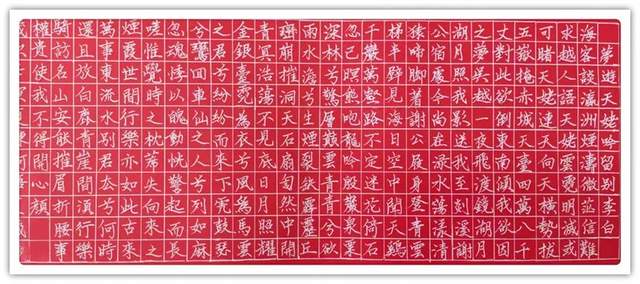 夢遊天姥吟留別李白
海客談瀛洲煙濤微茫信難
求越人語天姥雲霞明滅或
可睹天姥連天向天橫勢拔
五嶽掩赤城天台四萬八千
丈對此欲倒東南傾我欲因
之夢吳越一夜飛渡鏡湖月
湖月照我影送我至剡溪謝
公宿處今尚在淥水蕩漾清
猿啼腳著謝公屐身登青雲
梯半壁見海日空中聞天雞
千巖萬轉路不定迷花倚石
忽已暝熊咆龍吟殷巖泉慄
深林兮驚層巔雲青青兮欲
雨水澹兮生煙裂缺霹靂丘
巒崩摧洞天石扉訇然中開
青冥浩蕩不見底日月照耀
金銀臺霓為衣兮風為馬雲
之君兮紛紛而來下虎鼓瑟
兮鸞回車仙之人兮列如麻
忽魂悸以魄動怳驚起而長
嗟惟覺時之枕席失向來之
煙霞世間行樂亦如此古來
萬事東流水別君去兮何時
還且放白鹿青崖間須行
騎訪名山安能摧眉折腰事
權貴使我不得開心顏